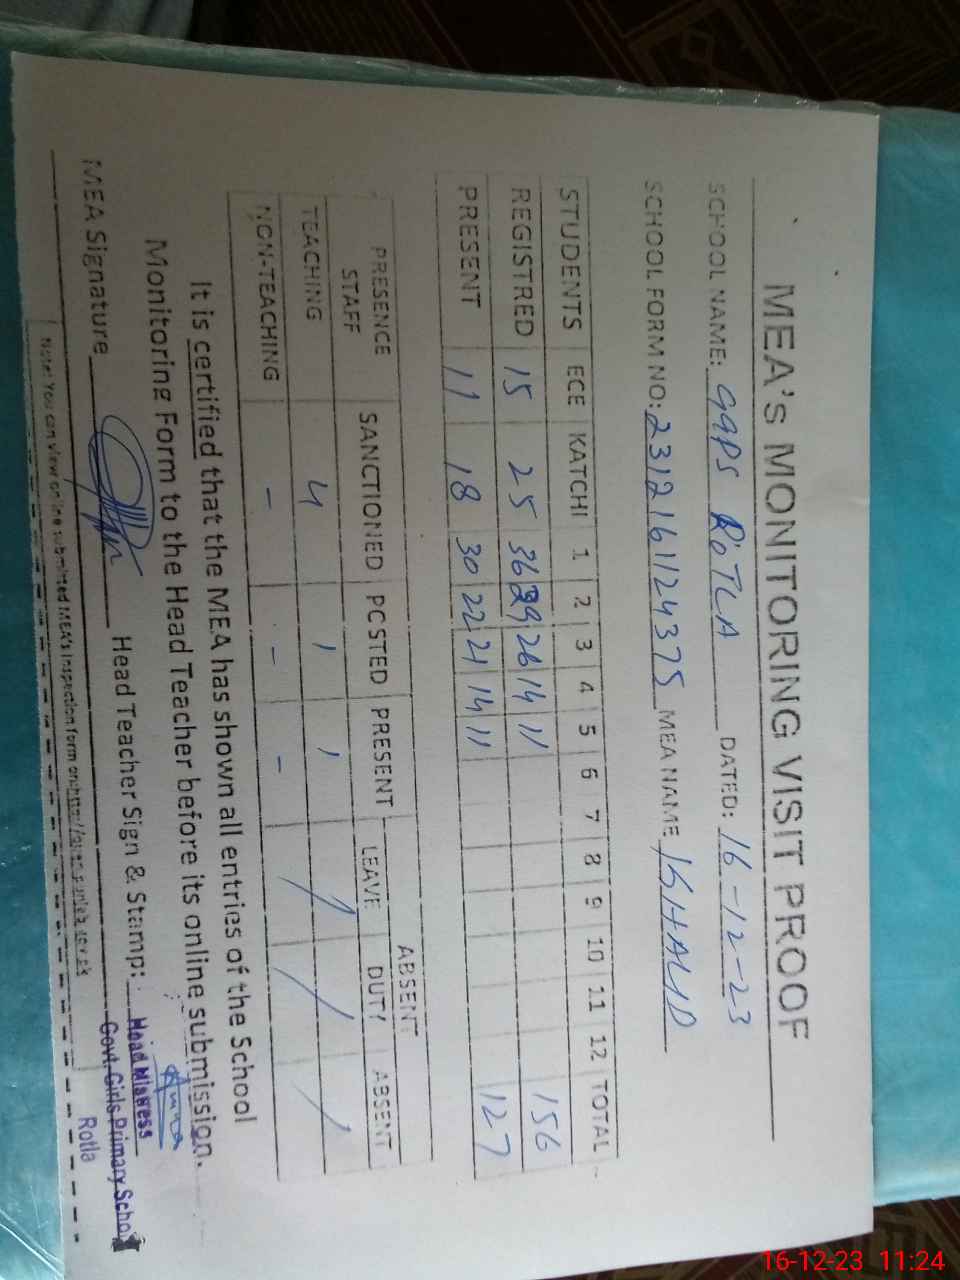 MEA's MONITORING VISIT PROOF
SCHOOL NAME: GGPS ROTLA DATED: 16-12-23
SCHOOL FORM NO: 2312161124375 MEA NAME KHALID
STUDENTS ECE KATCHI 1 2 3 4 5 6 7 8 9 10 11 12 TOTAL
REGISTRED 15 25 36 29 26 14 11 156
PRESENT 11 18 30 22 21 14 11 127
PRESENCE STAFF SANCTIONED PCSTED PRESENT ABSENT
LEAVE DUTY ABSENT
TEACHING 4 1 1 / / /
NON-TEACHING - - -
It is certified that the MEA has shown all entries of the School
Monitoring Form to the Head Teacher before its online submission.
MEA Signature Head Teacher Sign & Stamp:
Amna
Head Mistress
Govt. Girls Primary School
Rotla
Note: You can view online submitted MEA's Inspection form on
16-12-23 11:24